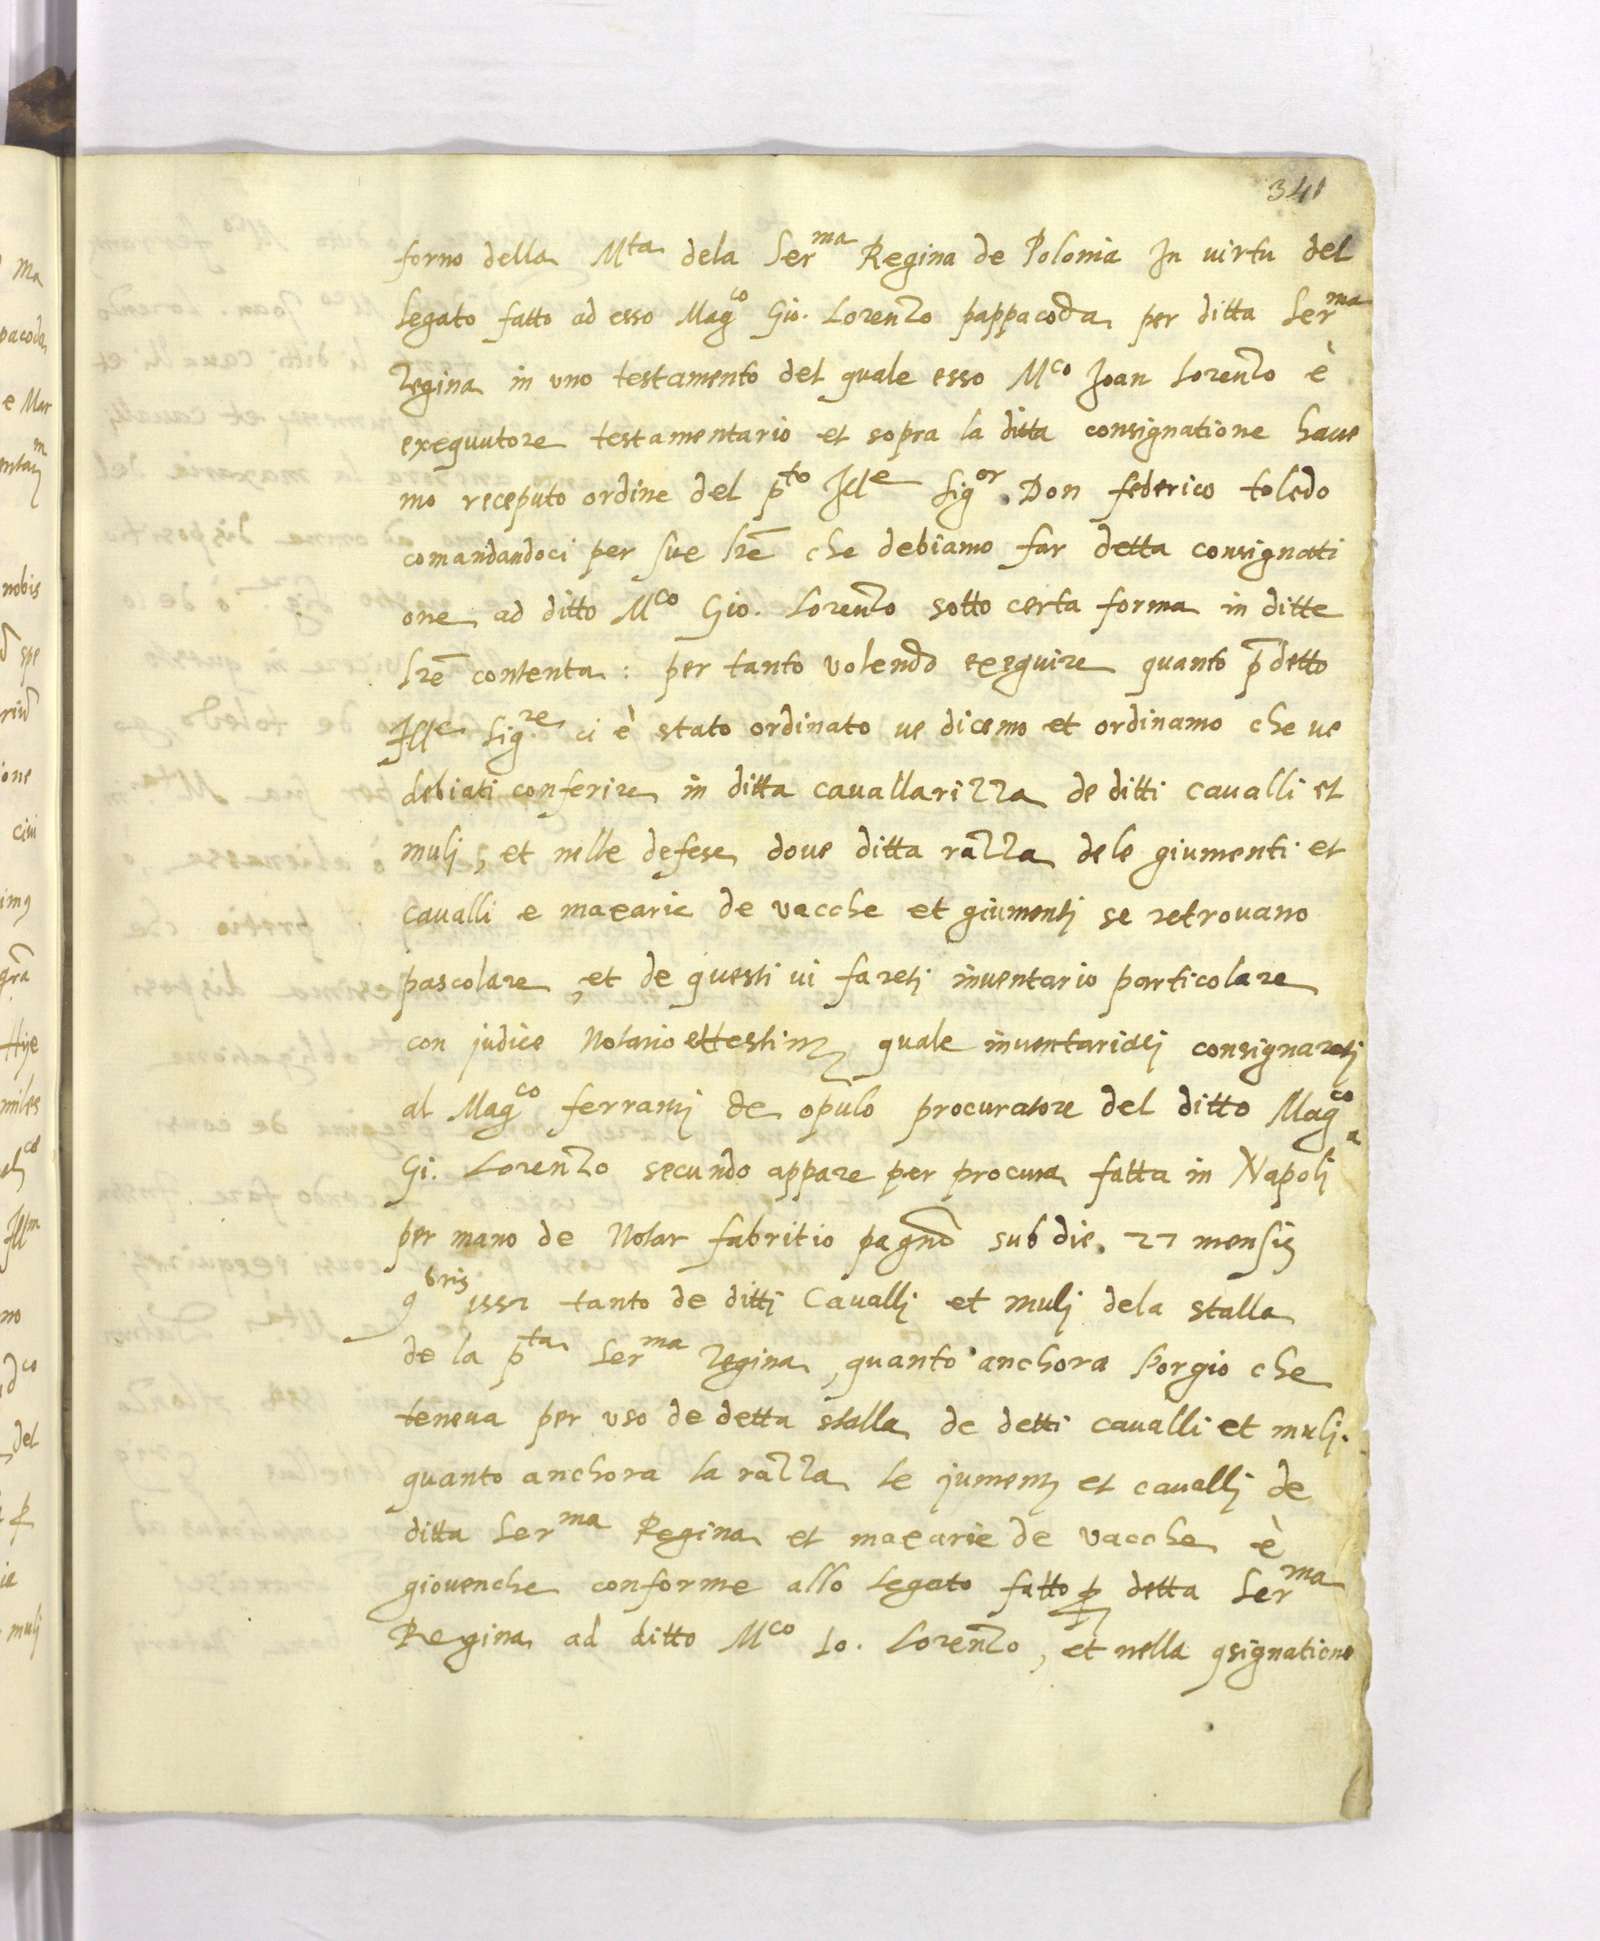 341
forno della Mta dela Serma Regina de Polonia In virtu del
legato fatto ad esso Magco Gio. Lorenzo pappacoda per ditta Serma
Regina in uno testamento del quale esso Mco Joan Lorenzo è
exequutore testamentario et sopra la ditta consignatione haue
mo receputo ordine del pto Ille Sigor Don federico toledo
comandandoci per sue lre che debiamo far detta consignati
one ad ditto Mco Gio. Lorenzo sotto certa forma in ditte
lre contenta: per tanto volendo exeguire quanto p detto
Ille Sig.re ci è stato ordinato ve dicemo et ordinamo che ve
debiati conferire in ditta cauallarizza de ditti caualli et
mulj, et nelle defese doue ditta razza dele giumenti et
caualli e maxarie de vacche et giumentj se retrouano
pascolare, et de questi vi faretj inventario particolare
con judice Notario et testim quale consignaretj
al Magco ferrantj de opulo procuratore del ditto Magco
Gi. Lorenzo secundo appare per procura fatta in Napolj
per mano de Notar fabritio pagno sub die. 27 mensis
9bris 1557 tanto de dittj Cauallj et mulj dela stalla
de la pta Serma Regina, quanto anchora che
teneua per uso de detta stalla de detti caualli et mulj.
quanto anchora la razza le jument et cauallj de
ditta Serma Regina et maxarie de vacche è
giouenche conforme allo legato fatto p detta Serma
Regina ad ditto Mco Io. Lorenzo, et nella 9signatione